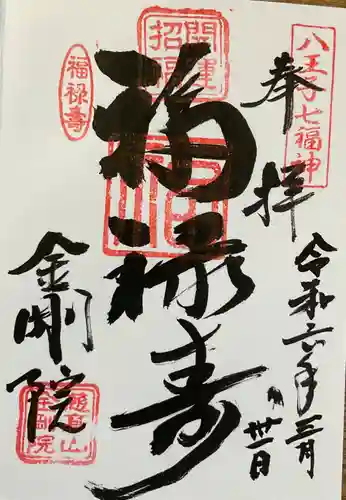 八王子七福神
奉拝
令和六年三月
卅一日
開運
招福
福禄寿
福禄壽
金剛院
金剛院